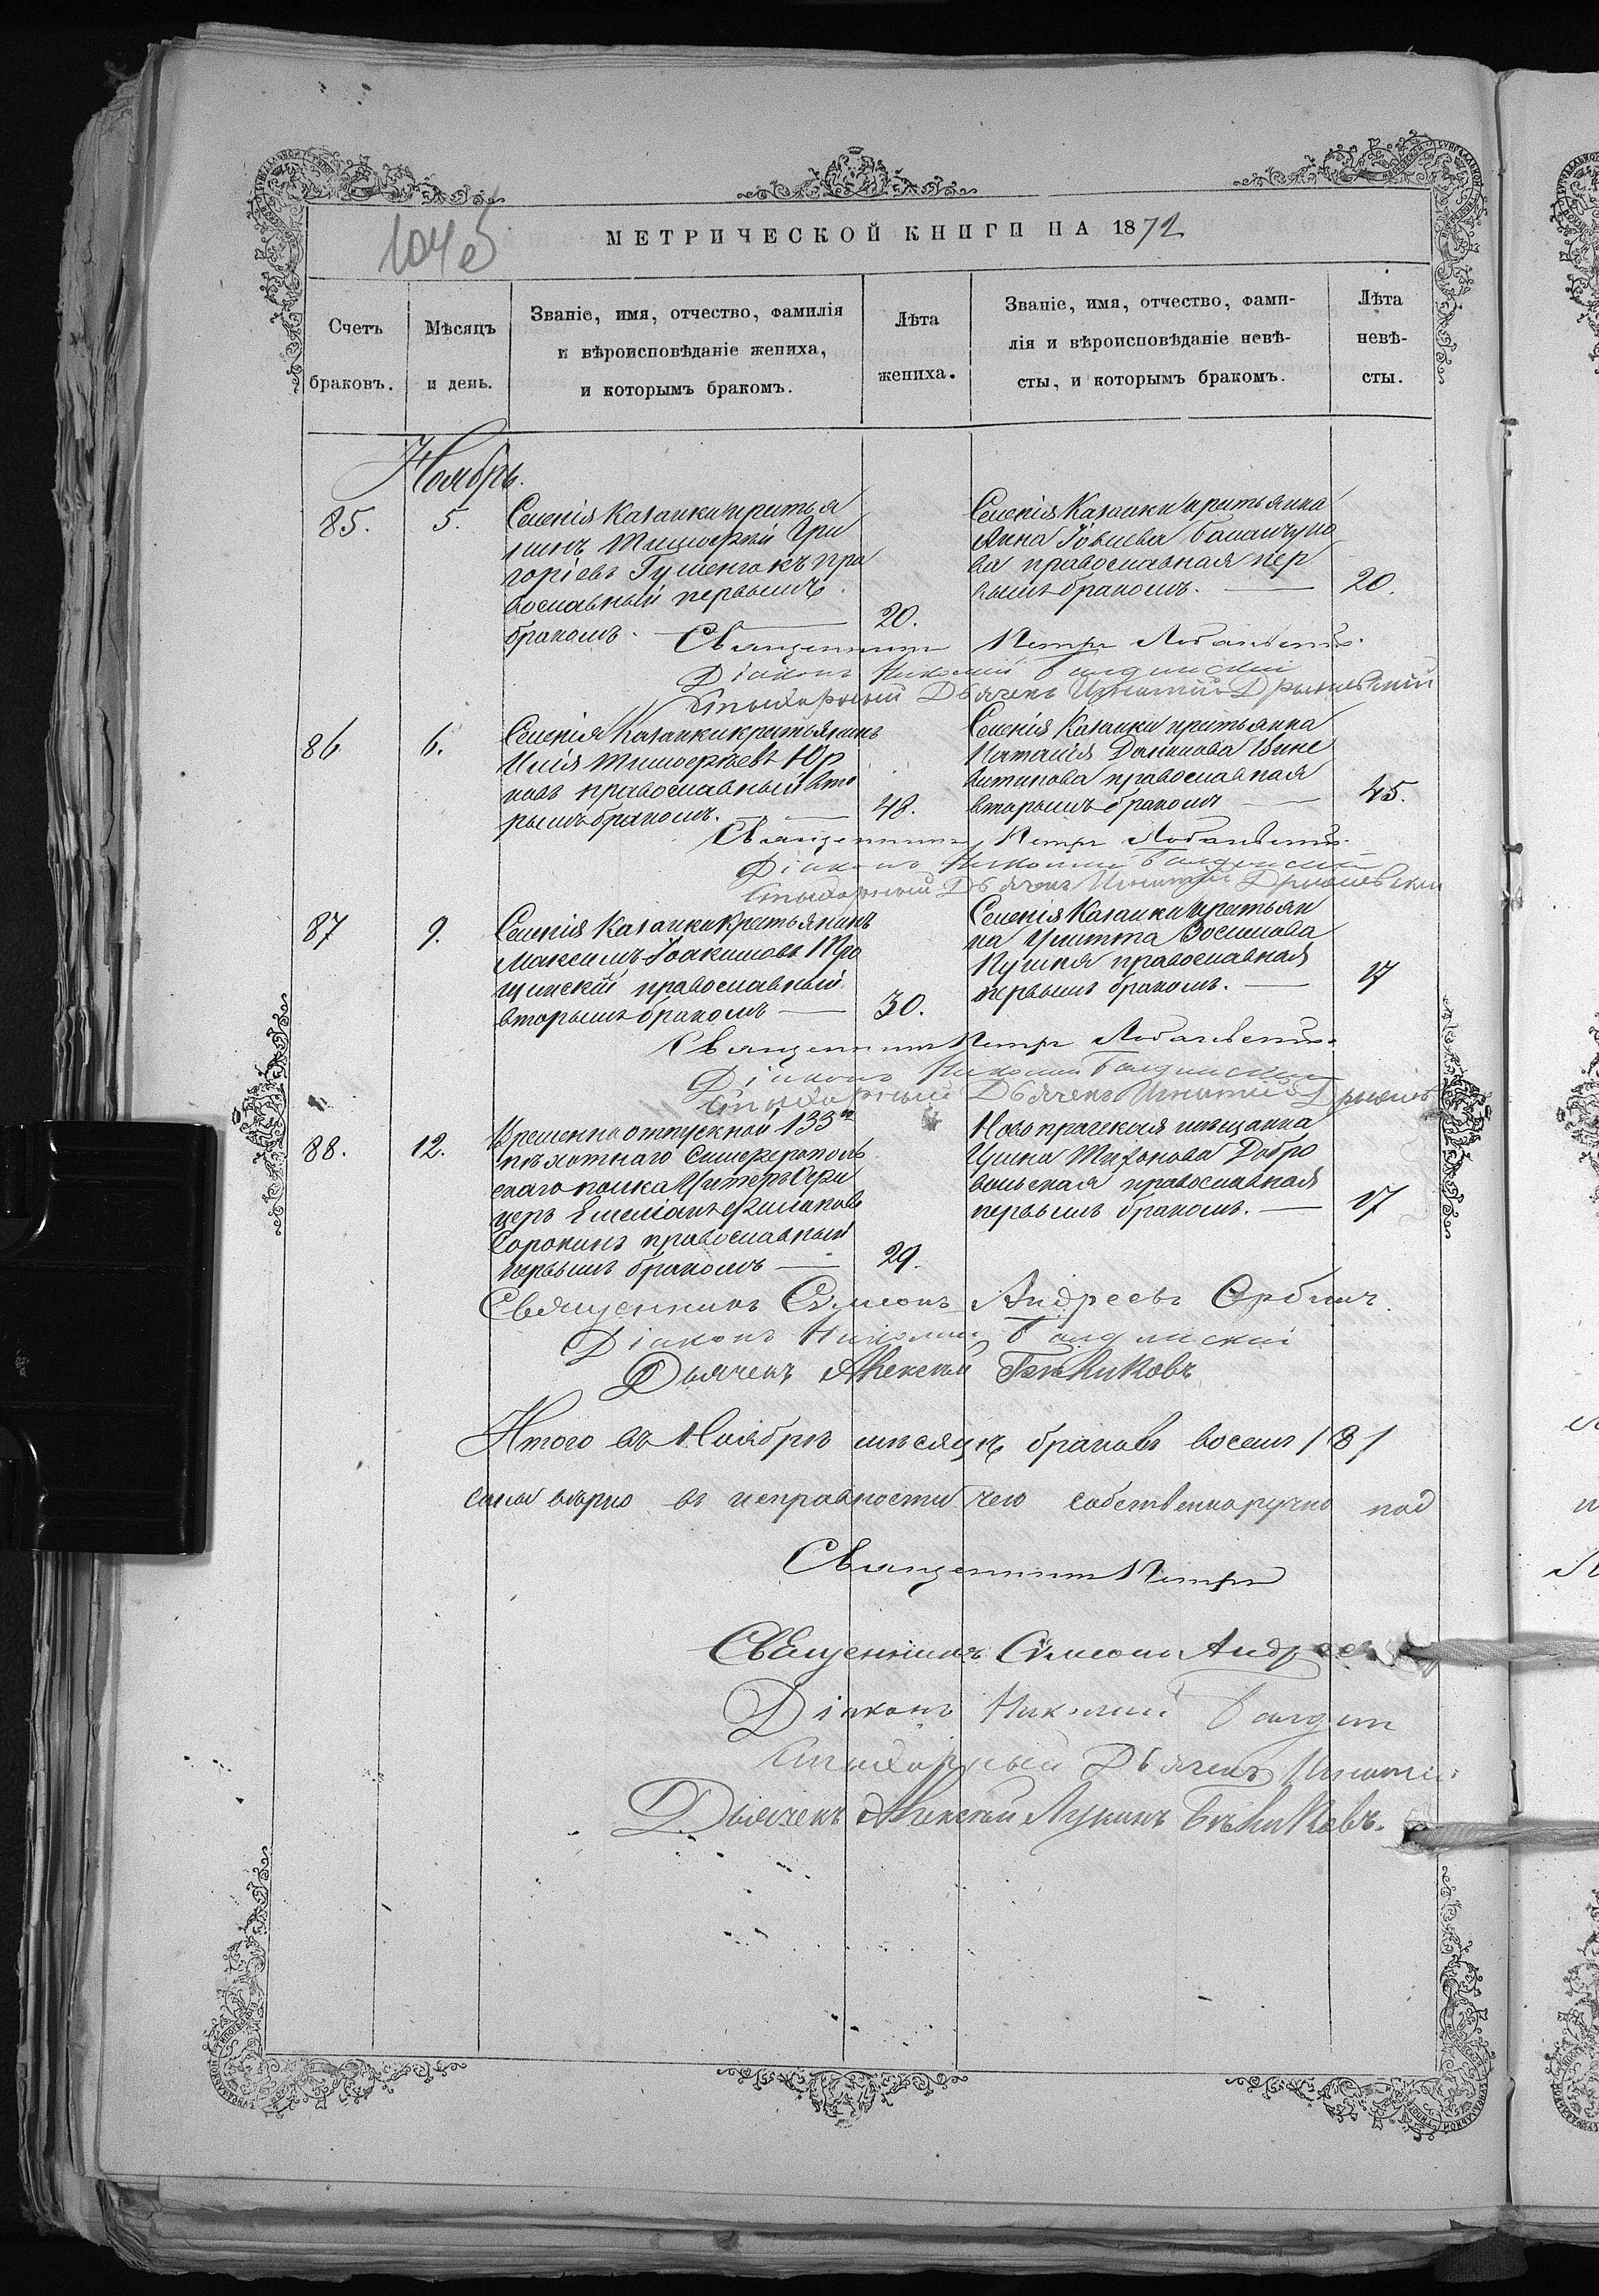 МЕТРИЧЕСКОЙ КНИГИ НА 1872
Счетъ
браковъ.
Мѣсяцъ
и день.
Званіе, имя, отчество, фамилія
и вѣроисповѣданіе жениха,
и которымъ бракомъ.
Лѣта
жениха.
Званіе, имя, отчество, фами-
лія и вѣроисповѣданіе невѣ-
сты, и которымъ бракомъ.
Лѣта
невѣ-
сты.
Ноябрь.
85.
5.
Селенія Казанки крестья
нинъ Тимофей Гри
горіевъ Гуменюкъ пра
вославный первымъ
бракомъ.
20.
Селенія Казанки крестьянка
Анна Іовлева
ва православная пер
вымъ бракомъ.
20.
Священникъ Петръ
Діаконъ Николай
Стихарный Дьячекъ Игнатій
86
6.
Селенія Казанки крестьянинъ
Илія Тимофеевъ Юр
ковъ православный вто
рымъ бракомъ.
48.
Селенія Казанки крестьянка
Наталія Данилова
православная
вторымъ бракомъ
45.
Священникъ Петръ
Діаконъ Николай
Стихарный Дьячекъ Игнатій
87
9.
Селенія Казанки крестьянинъ
Максимъ Іоакимовъ
православный
вторымъ бракомъ
30.
Селенія Казанки крестьян
ка Улитта Зосимова
православная
первымъ бракомъ.
17
Священникъ Петръ
Діаконъ Николай
Стихарный Дьячекъ Игнатій
88.
12.
Временно отпускной 133й
пѣхотнаго Симферополь
скаго полка Унтеръ Офи
церъ Емельянъ Филиповъ
Сорокинъ православный
первымъ бракомъ
29.
Новопражская мѣщанка
Ирина Тихонова Добро
вольская православная
первымъ бракомъ.
17
Священникъ Сѵмеонъ Андреевъ Орбинъ.
Діаконъ Николай
Дьячекъ Алексѣй Бѣликовъ
Итого въ Ноябрѣ мѣсяцѣ браковъ восемь /8/
вѣрно въ исправности чего собственноручно под
Священникъ Петръ
Священникъ Сѵмеонъ Андрее
Діаконъ Николай
Стихарный Дьячекъ Игнатій
Дьячекъ Алексѣй Лукинъ Бѣликовъ.